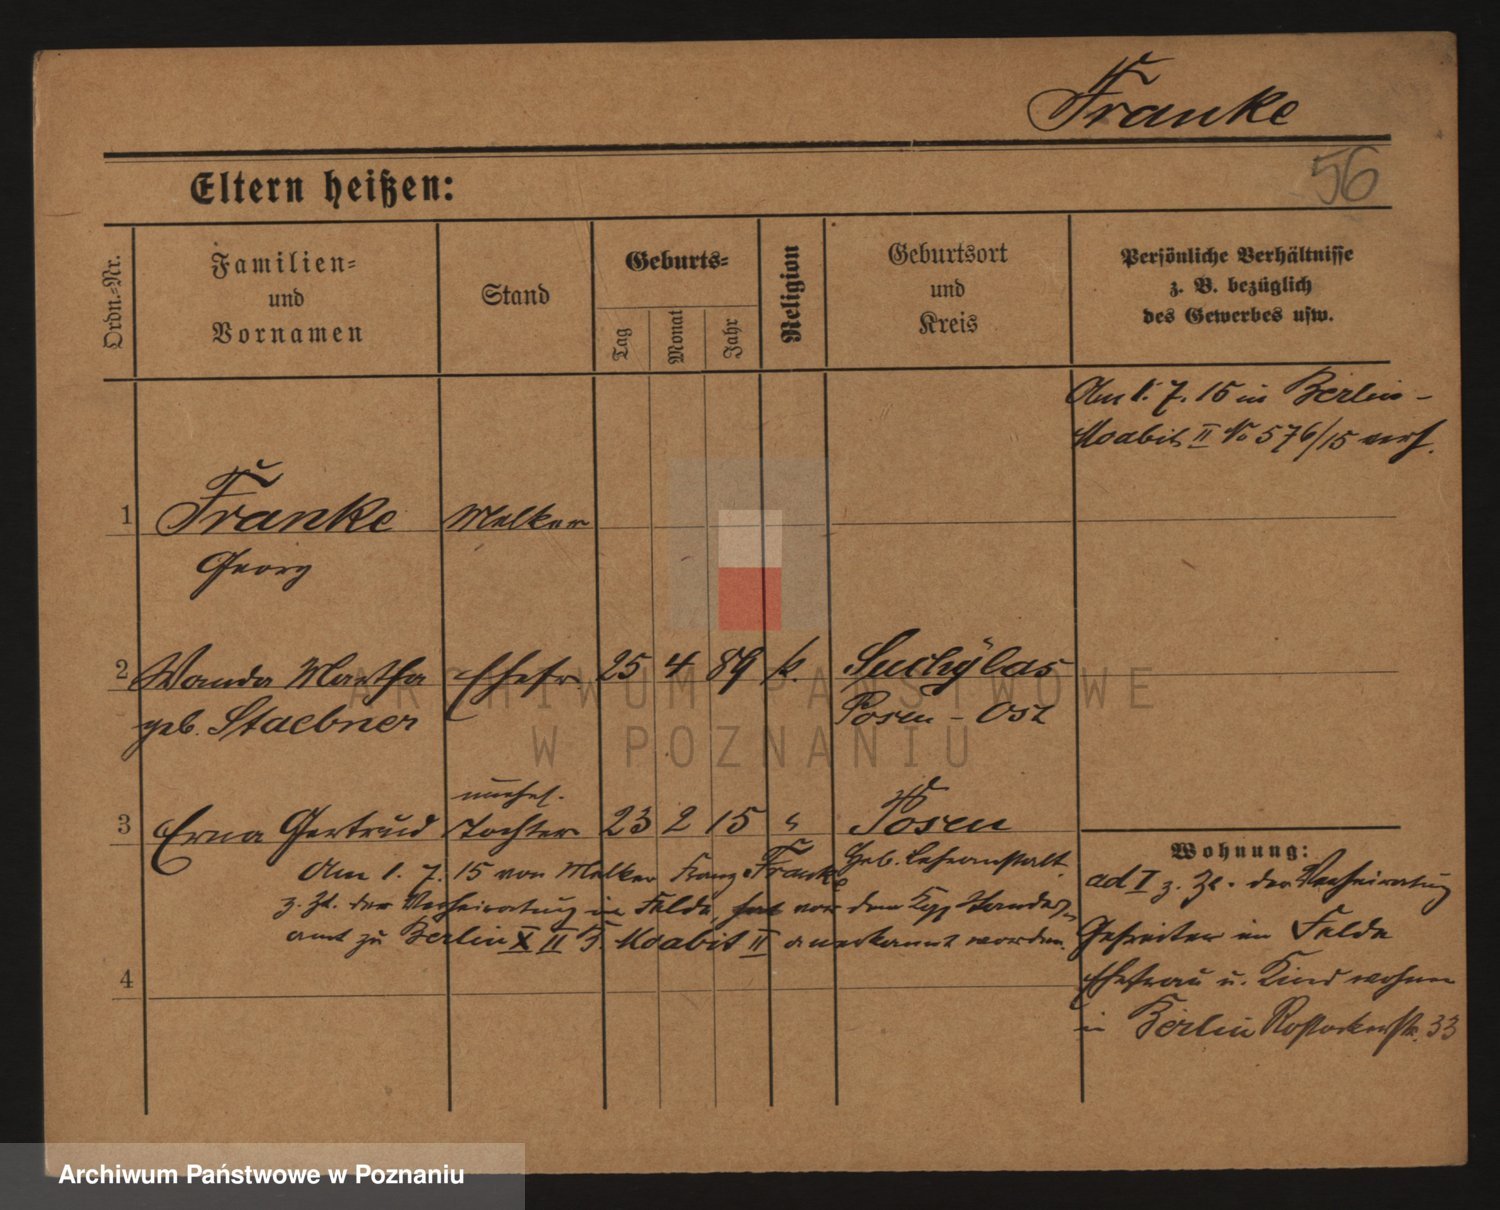 Franke
56
Eltern heißen:
Ordn.-Nr.
Familien-
und
Vornamen
Stand
Geburts-
Tag
Monat
Jahr
Religion
Geburtsort
und
Kreis
Persönliche Verhältnisse
z. B. bezüglich
des Gewerbes usw.
Am 1. 7. 15 in Berlin-
Moabit II No 576/15 verh.
1 Franke Melker
Georg
2 Wanda Martha Ehefr. 25 4 89 k. Suchylas
geb. Staebner Posen - Ost
unehel.
3 Erna Gertrud Tochter 23 2 15 " Posen
Geb. Lehranstalt.
Am 1. 7. 15 von Melker Franke
z. Zt. der Verheiratung im Felde, vor dem Kgl. Standes-
amt zu Berlin X II T. Moabit II anerkannt worden.
4
Wohnung:
ad I z. Zt. der Verheiratung
Gefreiter im Felde
Ehefrau u. Kind wohnen
in Berlin Rostockerstr. 33
ARCHIWUM PAŃSTWOWE
W POZNANIU
Archiwum Państwowe w Poznaniu